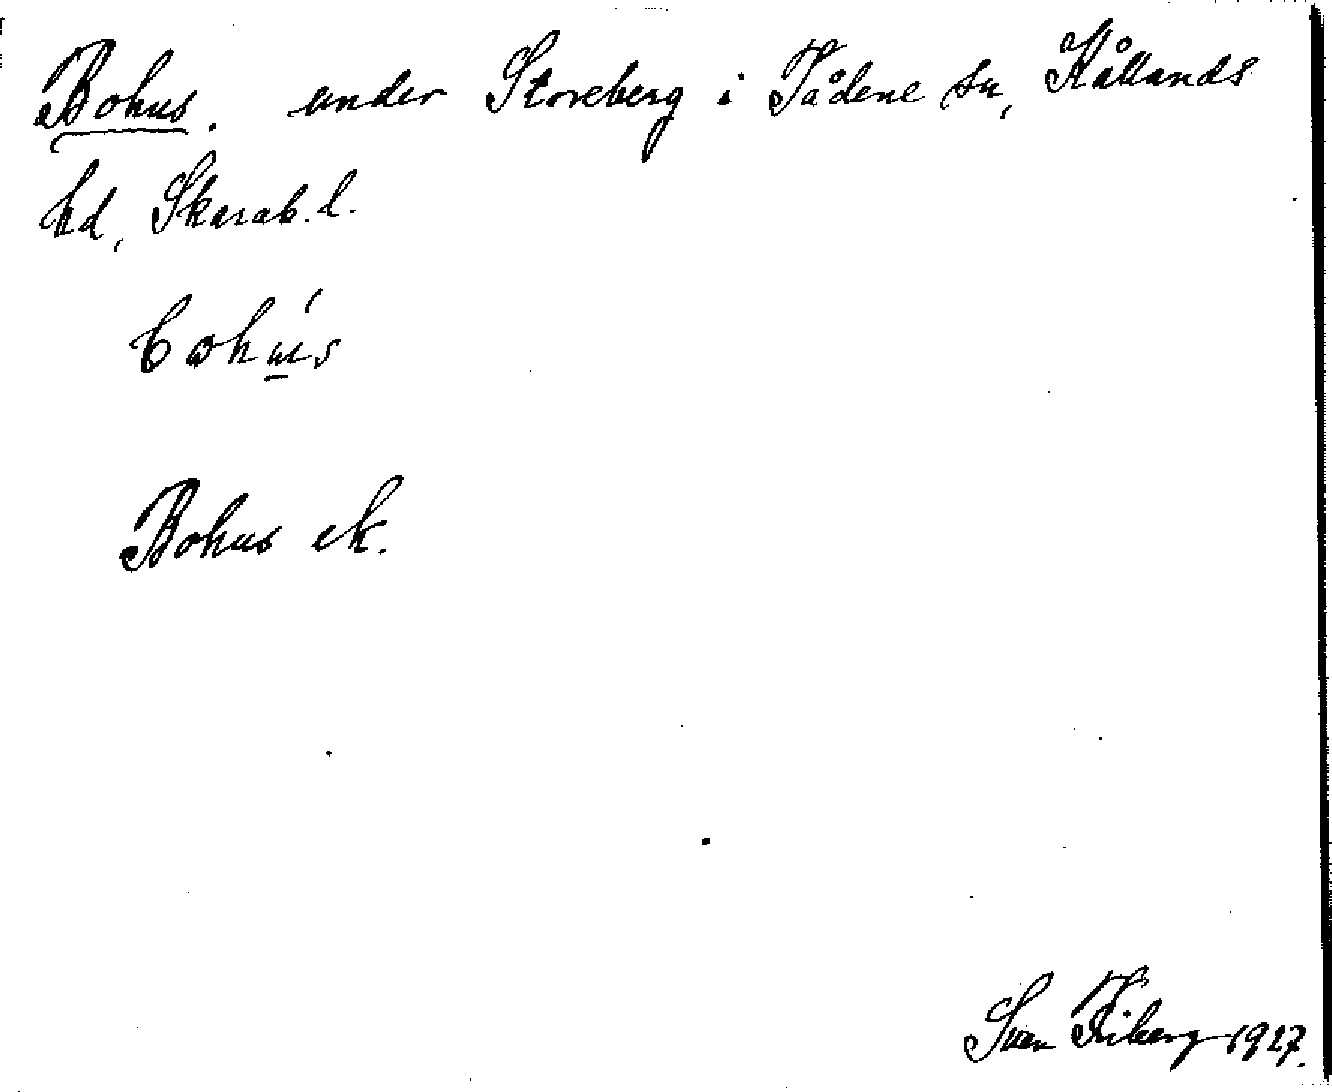 Bohus. under Storeberg i Tådene sn, Kållands
hd, Skarab. l.
bohu̲s
Bohus ek.
Sven Friberg 1927.